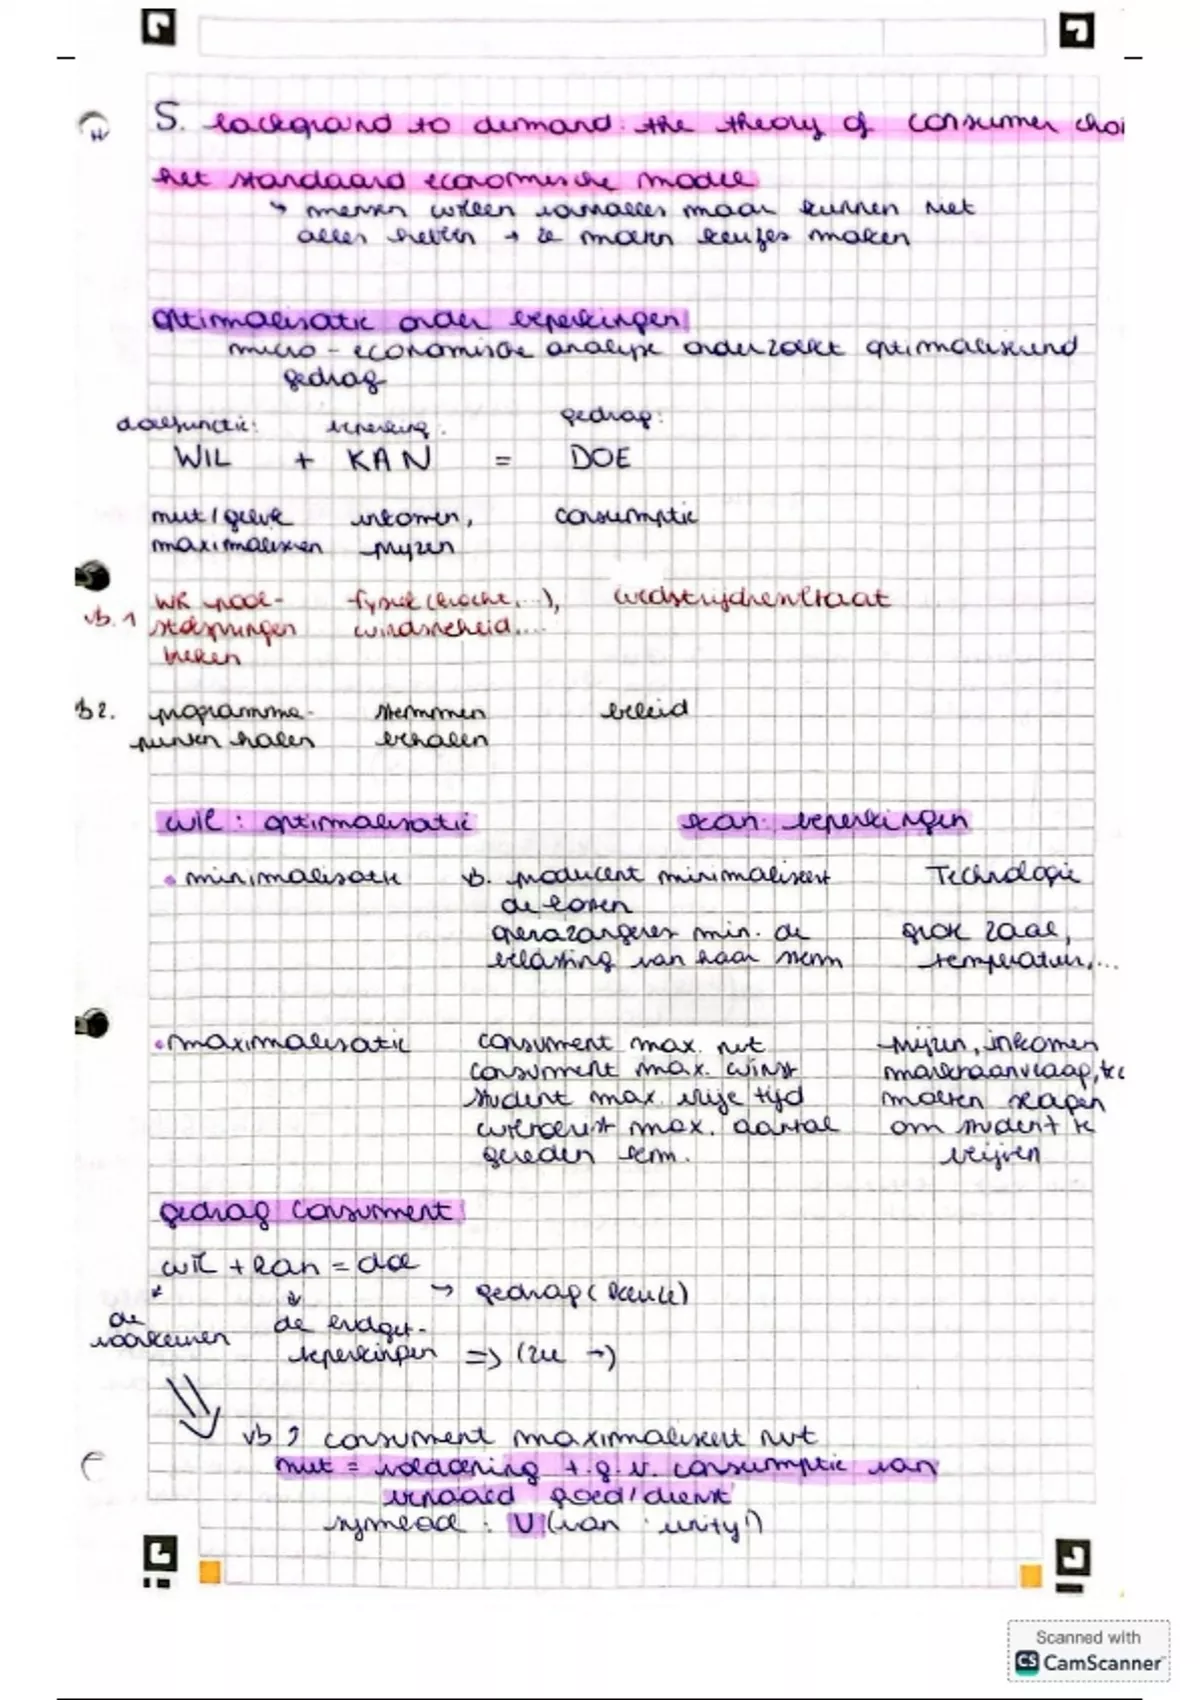 5. background to demand: the theory of consumer choi
het standaard economische model
↳ mensen willen van alles maar kunnen niet
alles hebben → ze moeten keuzes maken
optimalisatie onder beperkingen
micro-economische analyse onderzoekt optimaliserend
gedrag
doelfunctie: beperking: gedrag:
WIL + KAN = DOE
nut/geluk inkomen, consumptie
maximaliseren prijzen
vb. 1 WR pool- fysiek (kracht,...), wedstrijdresultaat
stokspringen windsnelheid,...
breken
b2. programma- stemmen beleid
punten halen behalen
wil: optimalisatie kan: beperkingen
• minimalisatie vb. producent minimaliseert Technologie
de kosten
operazangeres min. de grote zaal,
belasting van haar stem temperatuur,...
• maximalisatie consument max. nut prijzen, inkomen
consument max. winst marktaanvraag, tec
student max. vrije tijd moeten slagen
wielrenner max. aantal om student te
gereden km. blijven
gedrag consument
wil + kan = doe
→ gedrag (keuze)
de de budget-
voorkeuren beperkingen => (zie →)
vb: consument maximaliseert nut
nut = voldoening t.g.v. consumptie van
bepaald goed/dienst
symbool: U (van 'utility')
Scanned with
CS CamScanner